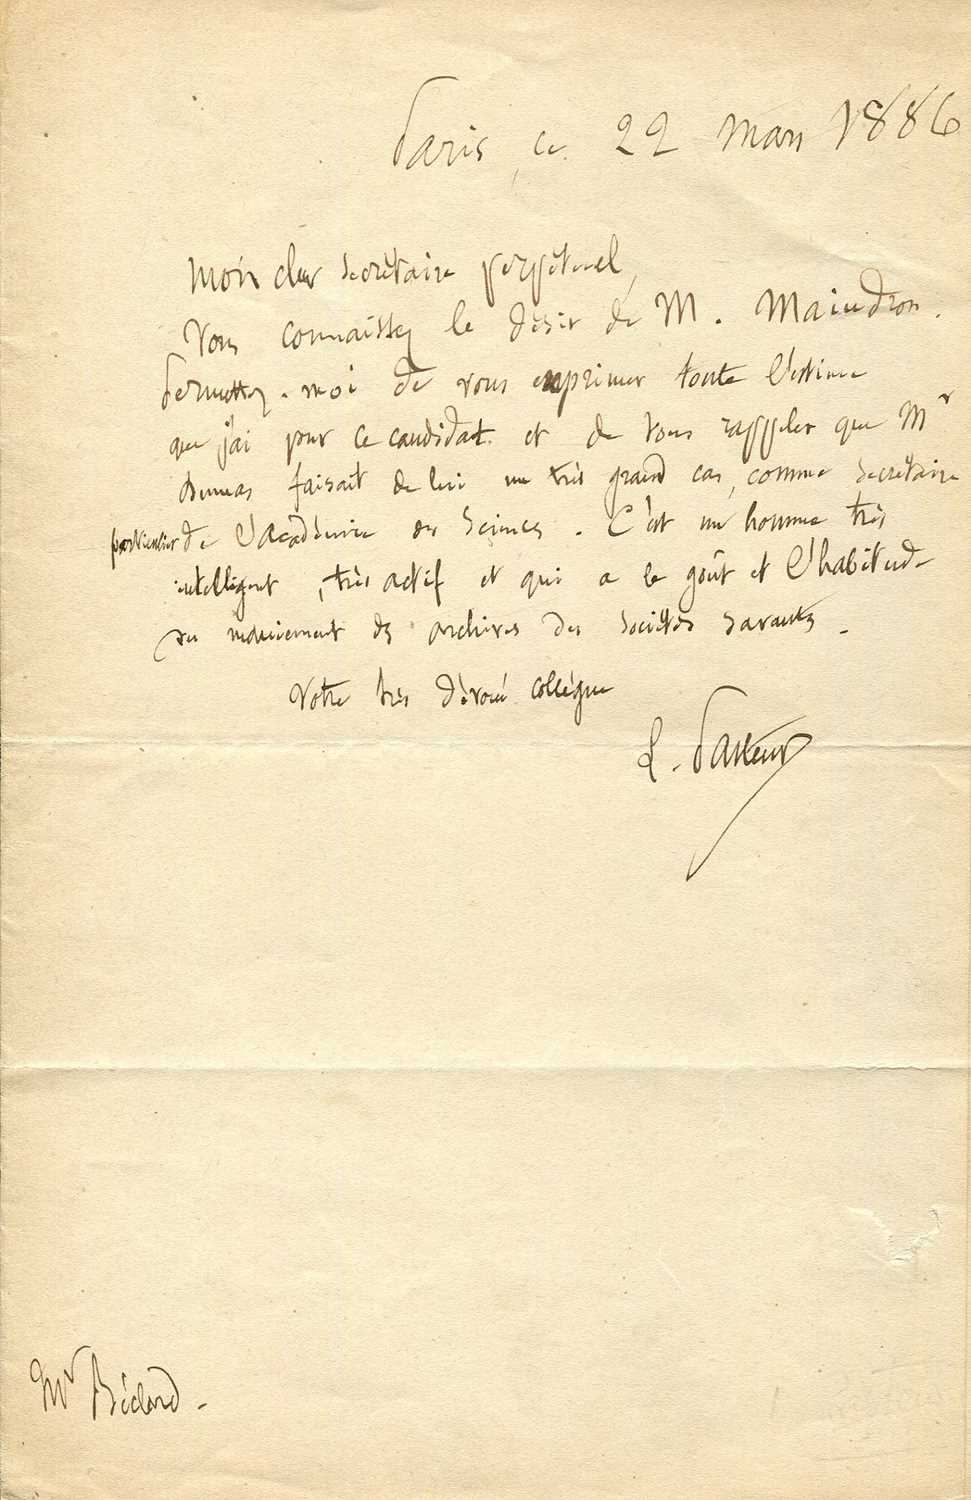 Paris, ce 22 mars 1886
Mon cher secrétaire perpétuel,
Vous connaissez le désir de M. Maindron.
Permettez-moi de vous exprimer toute l'estime
que j'ai pour ce candidat et de vous rappeler que Mr
Dumas faisait de lui un très grand cas, comme secrétaire
particulier de l'Académie des Sciences. C'est un homme très
intelligent, très actif et qui a le goût et l'habitude
du maniement des archives des sociétés savantes.
Votre très dévoué collègue
L. Pasteur
Mr Béclard.